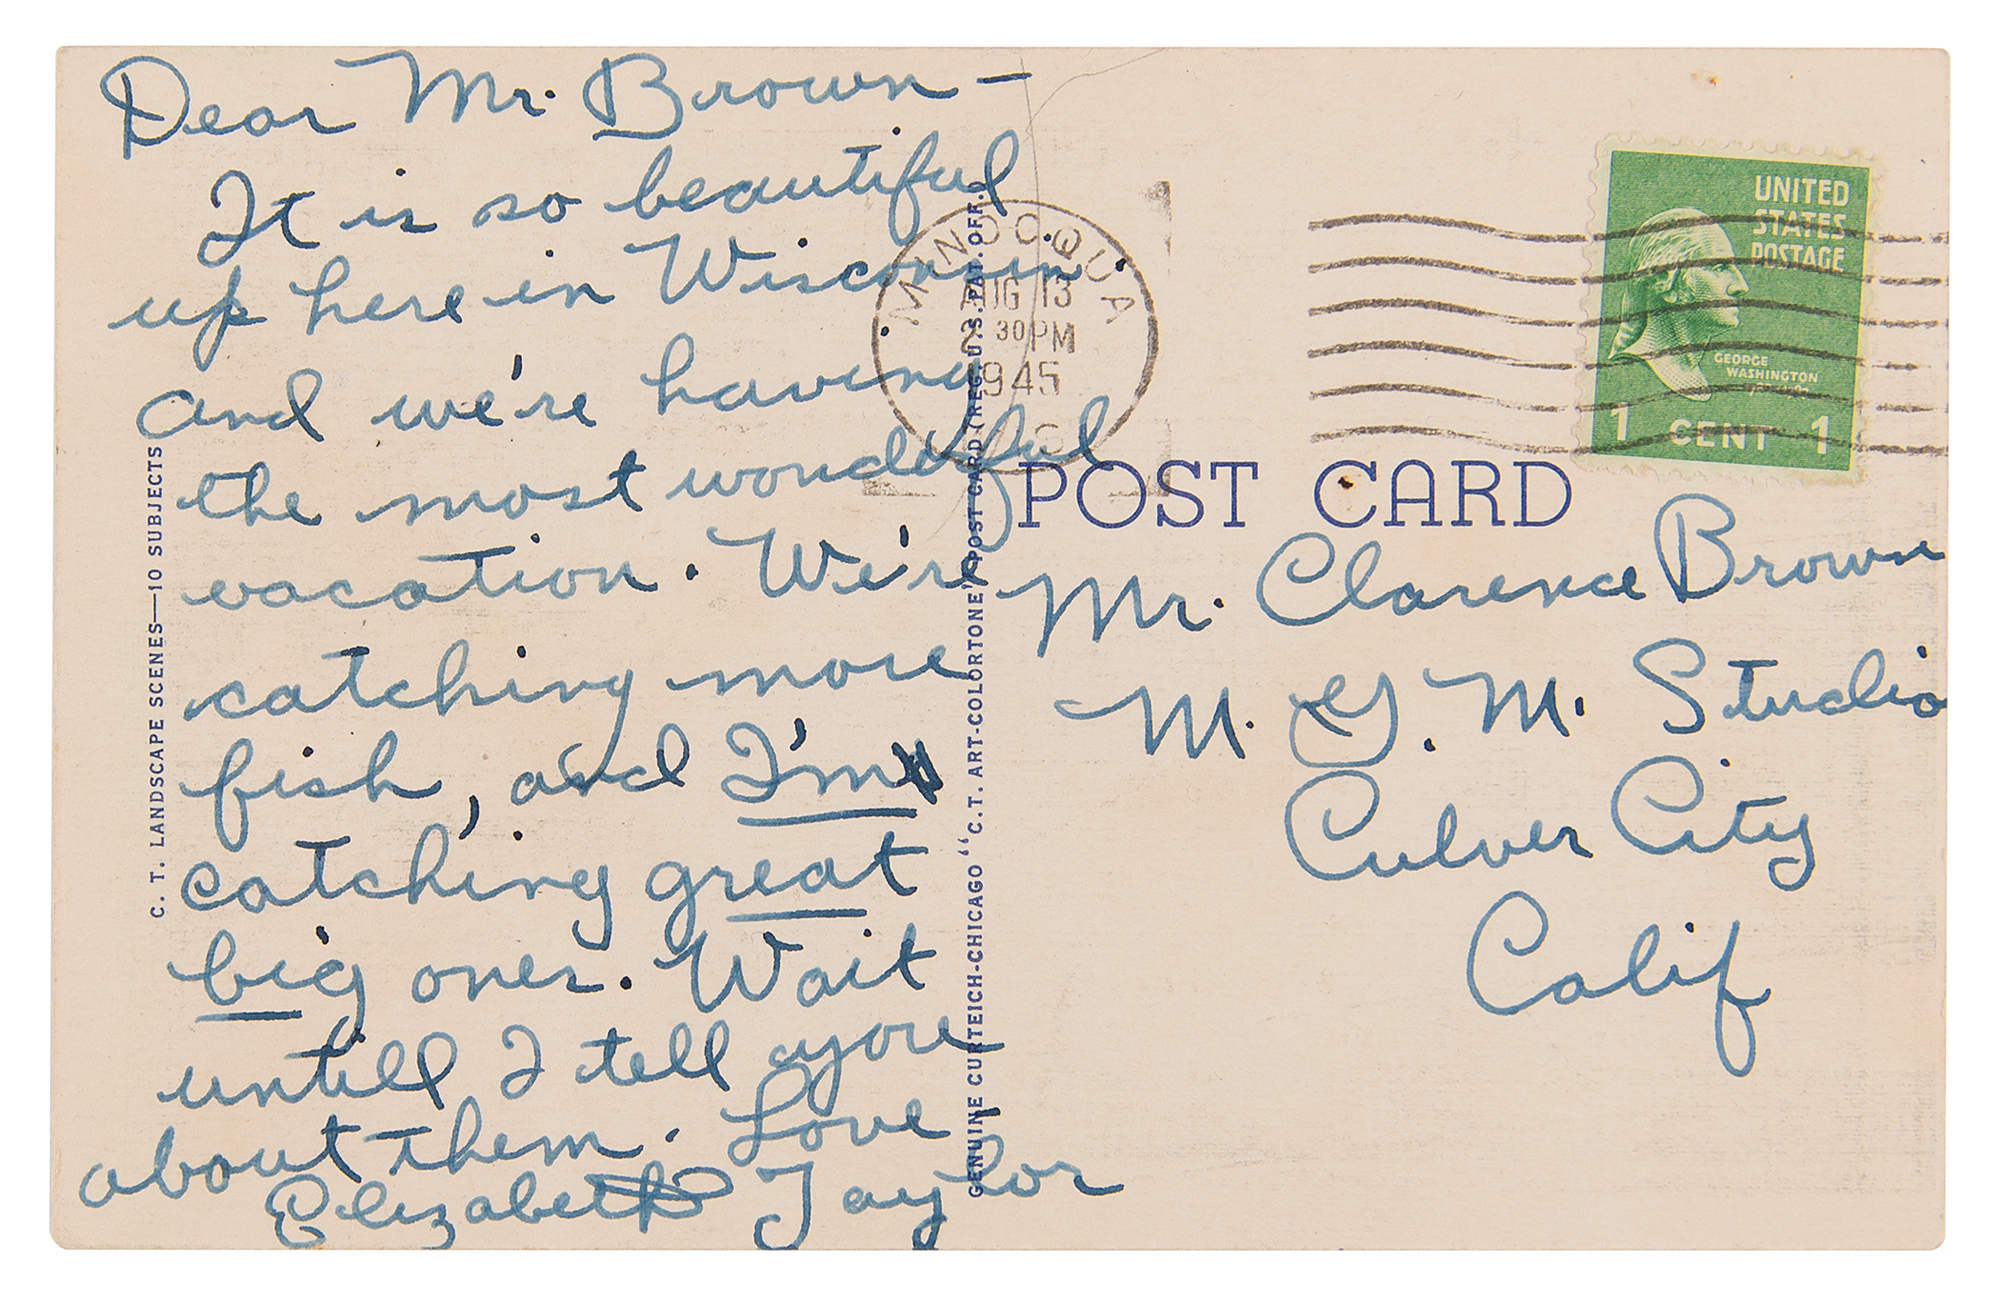 Dear Mr. Brown —
It is so beautiful
up here in Wisconsin.
and we're having
the most wonderful
vacation. We're
catching more
fish, and I'm
catching great
big ones. Wait
untill I tell you
about them. Love
Elizabeth Taylor
C. T. LANDSCAPE SCENES—10 SUBJECTS
GENUINE CURTEICH-CHICAGO "C.T. ART-COLORTONE" POST CARD (REG. U.S. PAT. OFF.)
MINOCQUA
AUG 13
30 PM
1945
UNITED
STATES
POSTAGE
GEORGE
WASHINGTON
1 CENT 1
POST CARD
Mr. Clarence Brown
M. G. M. Studio
Culver City
Calif